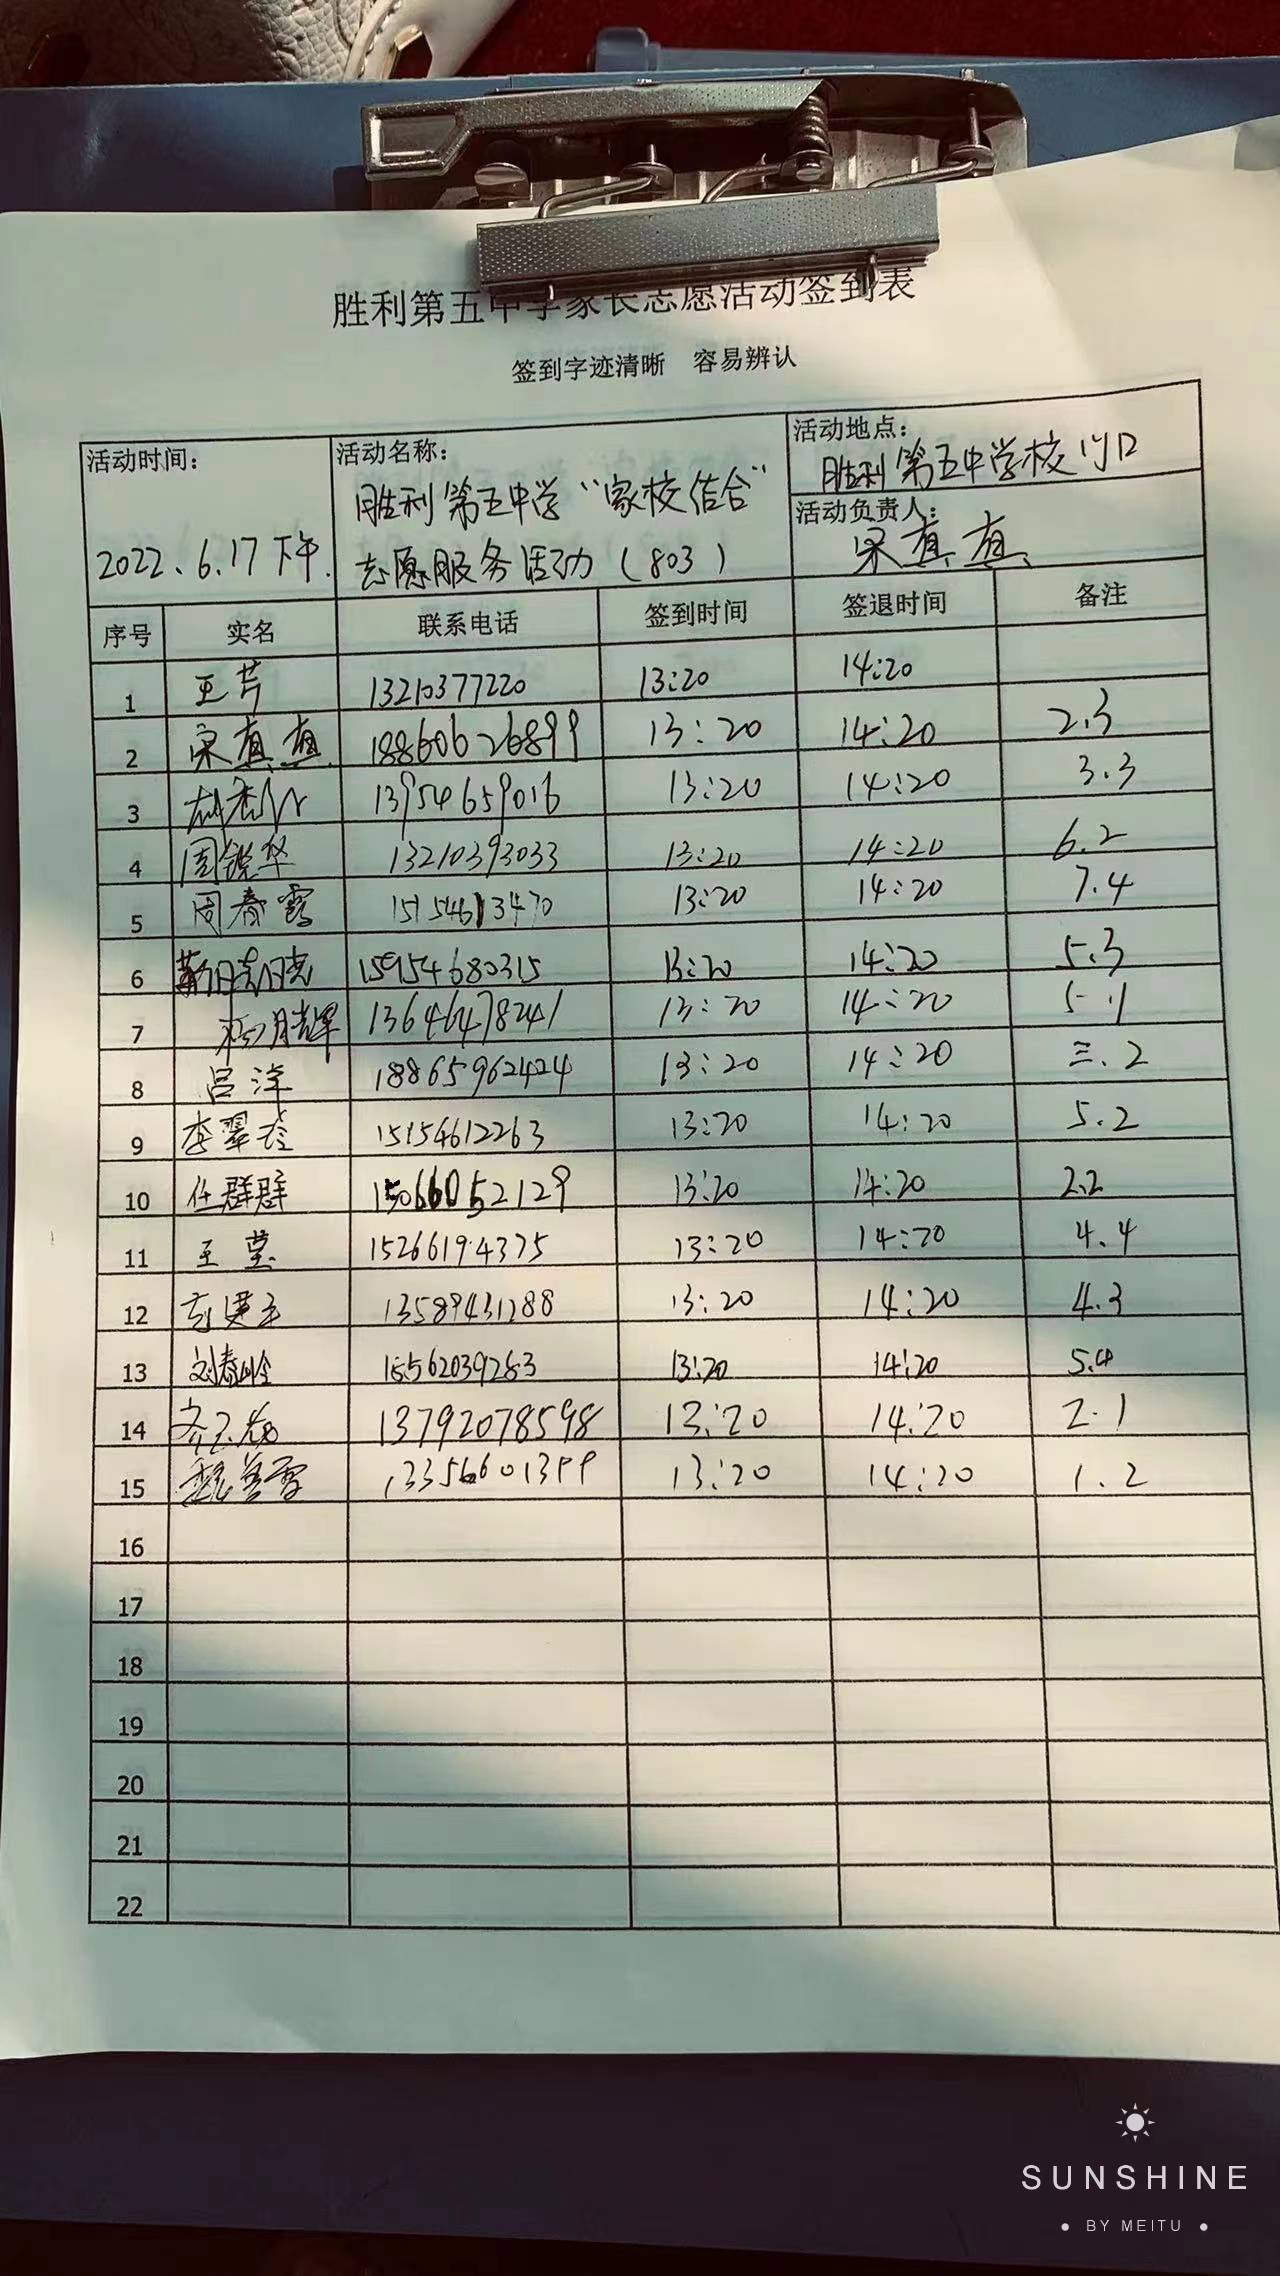 胜利第五中学家长志愿活动签到表
签到字迹清晰 容易辨认
活动时间: 2022.6.17下午.
活动名称: 胜利第五中学“家校结合”
志愿服务活动(803)
活动地点: 胜利第五中学校门口
活动负责人: 宋真真
序号 实名 联系电话 签到时间 签退时间 备注
1 王芹 13210377220 13:20 14:20
2 宋真真 18860626899 13:20 14:20 2.3
3 13954659016 13:20 14:20 3.3
4 周锐华 13210393033 13:20 14:20 6.2
5 周春霞 15154613470 13:20 14:20 7.4
6 15954680315 13:20 14:20 5.3
7 杨月辉 13646478241 13:20 14:20 5.1
8 吕洋 18865962424 13:20 14:20 三.2
9 李翠玲 15154612263 13:20 14:20 5.2
10 任群群 15066052129 13:20 14:20 2.2
11 王莹 15266194375 13:20 14:20 4.4
12 13589431288 13:20 14:20 4.3
13 刘春玲 13:20 14:20 5.4
14 13792078598 13:20 14:20 2.1
15 13356601399 13:20 14:20 1.2
16
17
18
19
20
21
22
SUNSHINE
BY MEITU